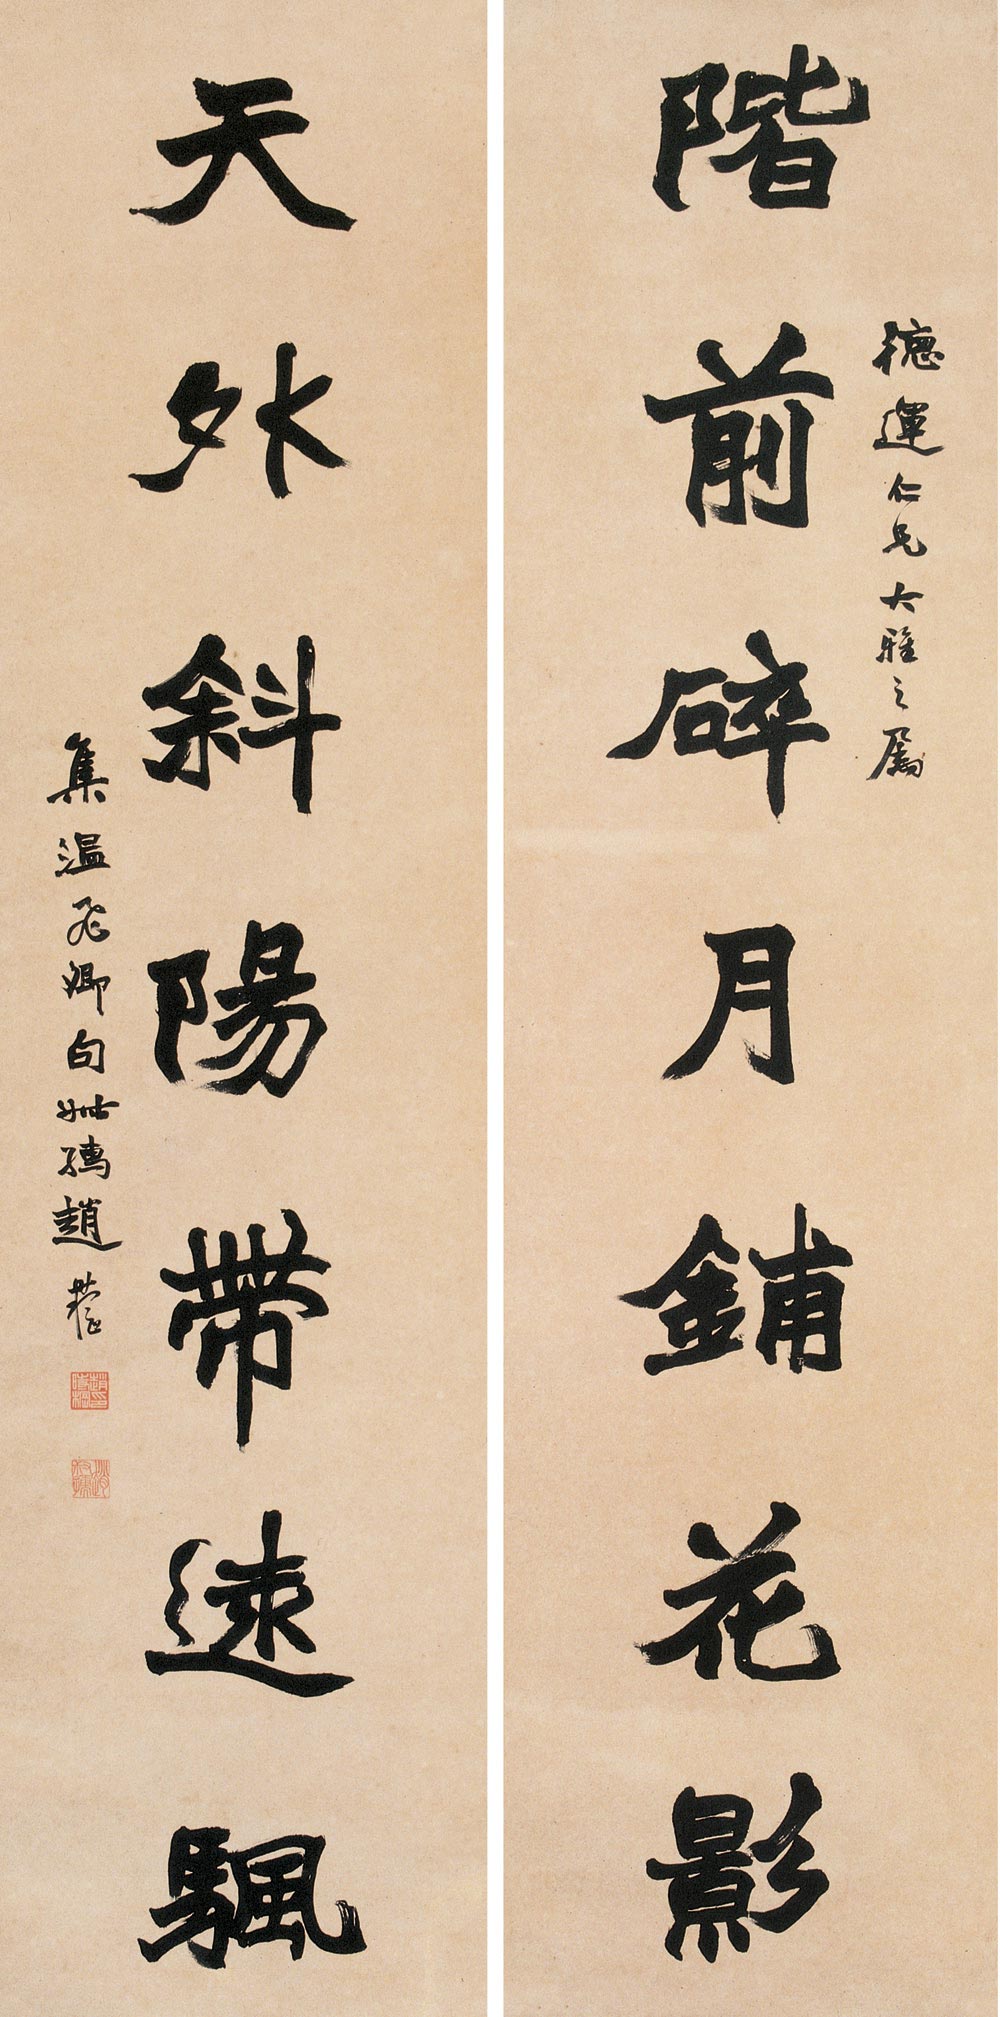 德運仁兄大雅之屬
階前碎月鋪花影
天外斜陽帶遠颿
集温飛卿句叔孺趙時棡